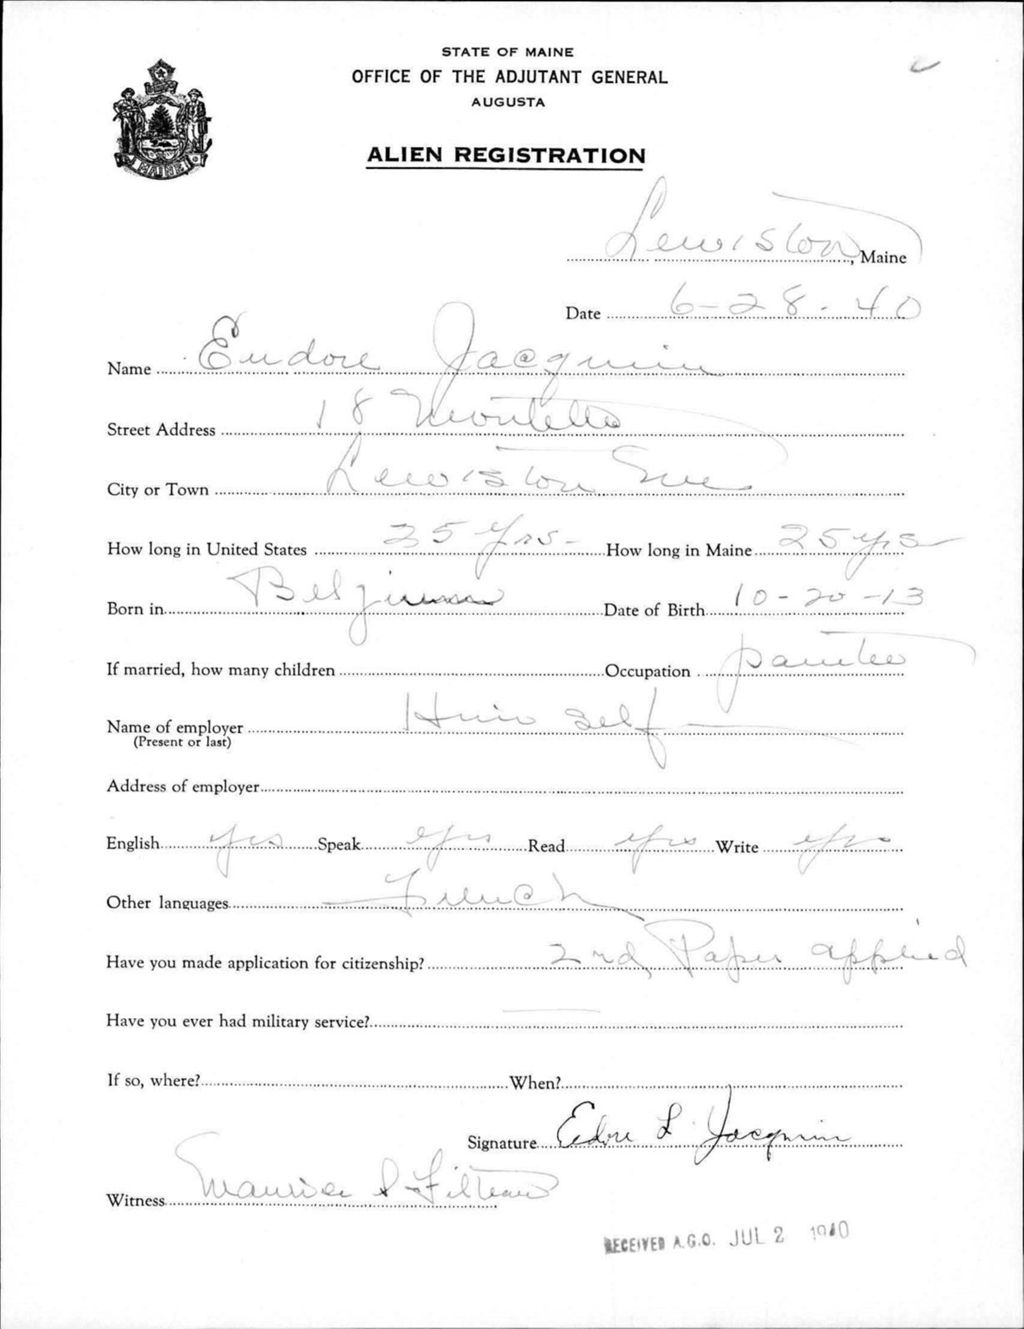 STATE OF MAINE
OFFICE OF THE ADJUTANT GENERAL
AUGUSTA
MAINE
ALIEN REGISTRATION
Lewiston, Maine
Date 6-28-40
Name Eudore Jacqmin
Street Address 18 Montello
City or Town Lewiston Me
How long in United States 25 yrs - How long in Maine 25 yrs
Born in Belgium Date of Birth 10-20-13
If married, how many children Occupation painter
Name of employer Him self
(Present or last)
Address of employer
English yes Speak yes Read yes Write yes
Other languages French
Have you made application for citizenship? 2nd Paper applied
Have you ever had military service? —
If so, where? When?
Signature Eudore L Jacqmin
Witness Maurice Filteau
RECEIVED A.G.O. JUL 2 1940